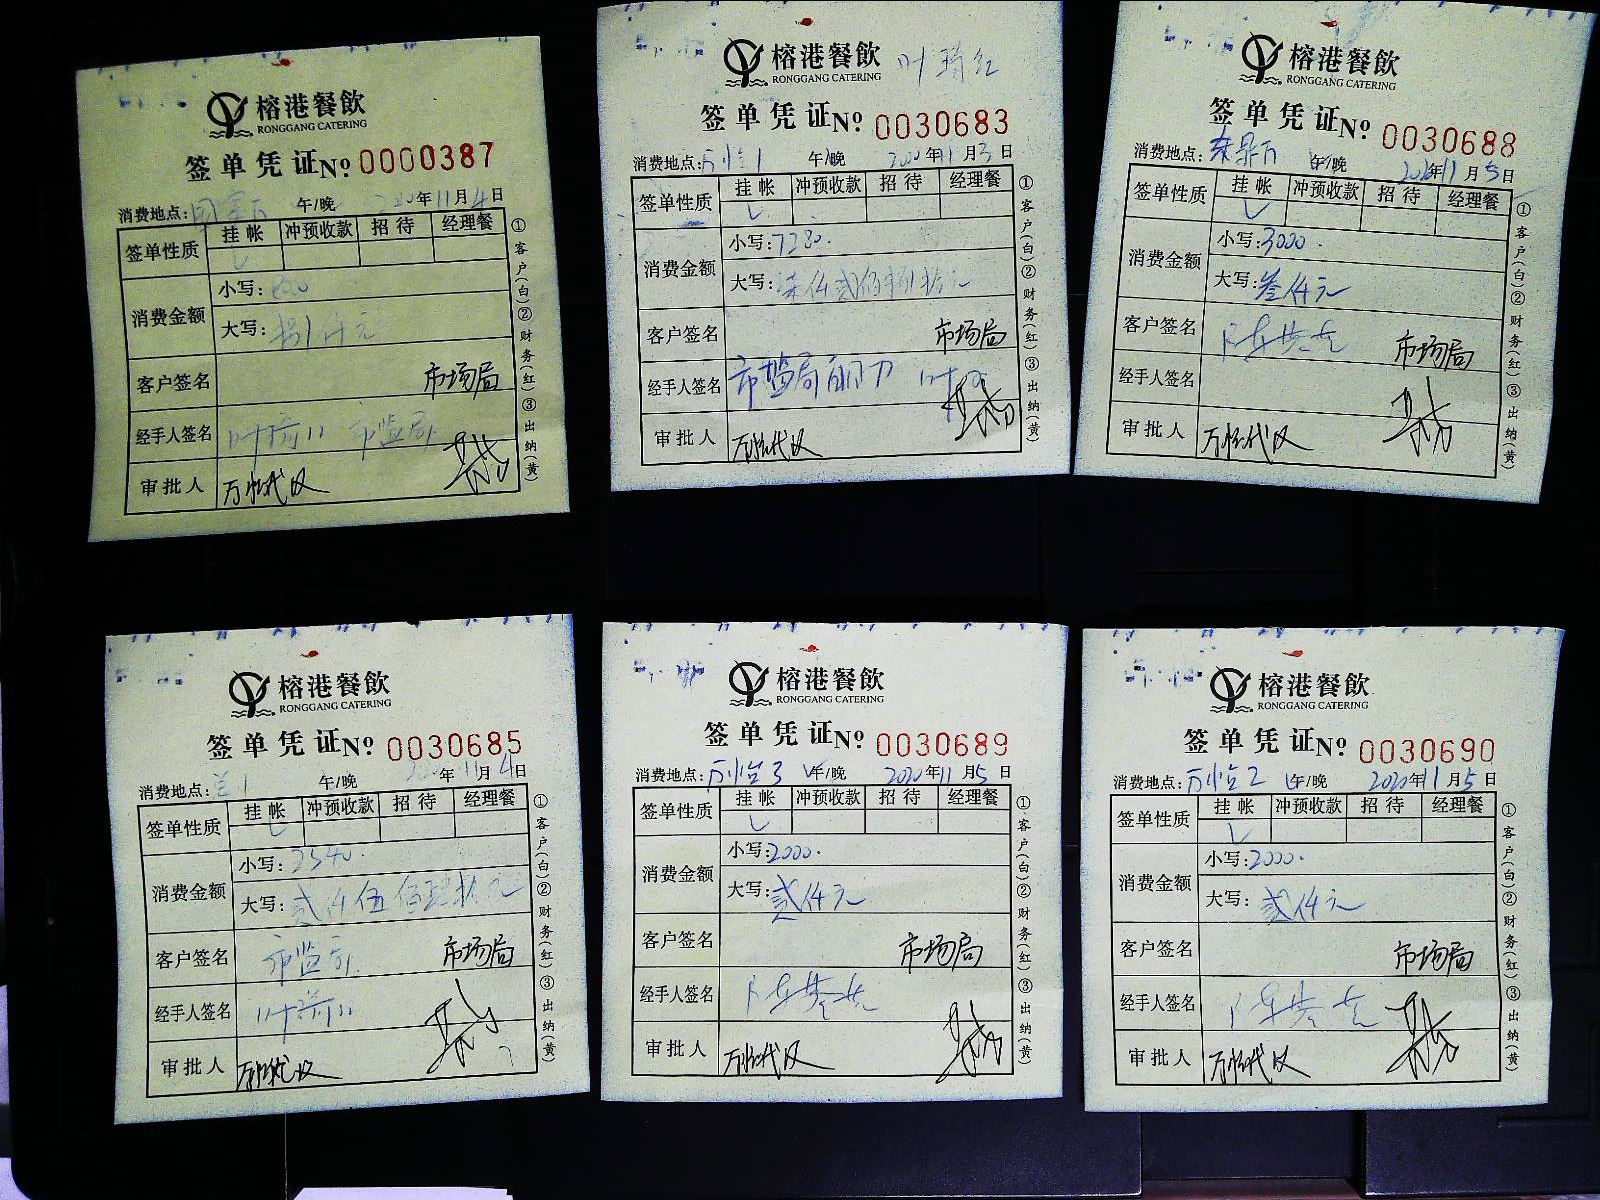 榕港餐飲
RONGGANG CATERING
签单凭证 № 0000387
消费地点: 午/晚 2020年11月4日
签单性质 挂帐 冲预收款 招待 经理餐
消费金额 小写:
大写:
客户签名 市场局
经手人签名 市监局
审批人
①客户(白)②财务(红)③出纳(黄)
榕港餐飲
RONGGANG CATERING
签单凭证 № 0030683
消费地点:万怡1 午/晚 2020年11月3日
签单性质 挂帐 冲预收款 招待 经理餐
消费金额 小写:7280.
大写:柒仟贰佰捌拾元
客户签名 市场局
经手人签名 市监局
审批人
①客户(白)②财务(红)③出纳(黄)
榕港餐飲
RONGGANG CATERING
签单凭证 № 0030688
消费地点: 午/晚 2020年11月5日
签单性质 挂帐 冲预收款 招待 经理餐
消费金额 小写:3000.
大写:叁仟元
客户签名 市场局
经手人签名
审批人
①客户(白)②财务(红)③出纳(黄)
榕港餐飲
RONGGANG CATERING
签单凭证 № 0030685
消费地点:兰1 午/晚 2020年11月4日
签单性质 挂帐 冲预收款 招待 经理餐
消费金额 小写:2540.
大写:贰仟伍佰肆拾元
客户签名 市监局 市场局
经手人签名
审批人
①客户(白)②财务(红)③出纳(黄)
榕港餐飲
RONGGANG CATERING
签单凭证 № 0030689
消费地点:万怡3 午/晚 2020年11月5日
签单性质 挂帐 冲预收款 招待 经理餐
消费金额 小写:2000.
大写:贰仟元
客户签名 市场局
经手人签名
审批人
①客户(白)②财务(红)③出纳(黄)
榕港餐飲
RONGGANG CATERING
签单凭证 № 0030690
消费地点:万怡2 午/晚 2020年11月5日
签单性质 挂帐 冲预收款 招待 经理餐
消费金额 小写:2000.
大写:贰仟元
客户签名 市场局
经手人签名
审批人
①客户(白)②财务(红)③出纳(黄)